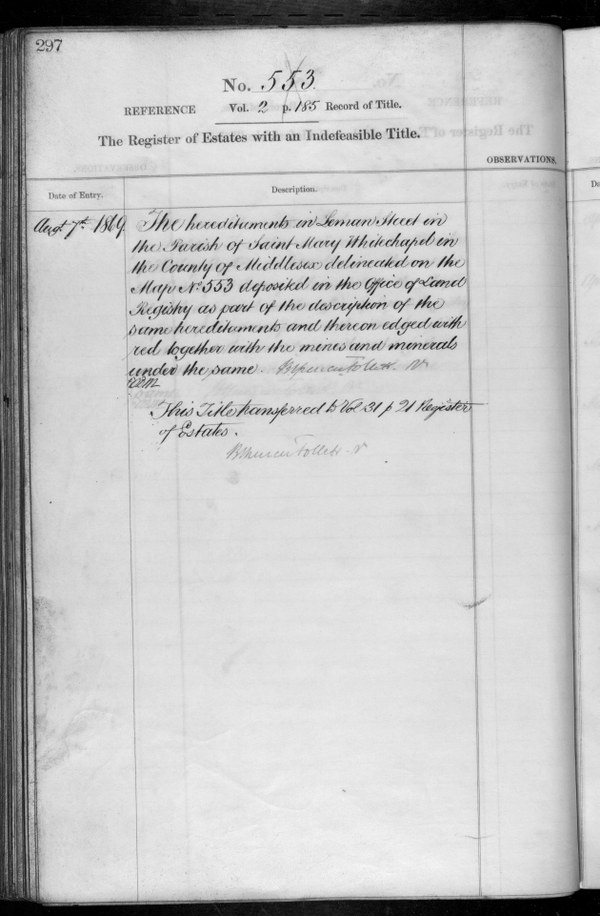 297
No. 553
REFERENCE Vol. 2 p. 185 Record of Title.
The Register of Estates with an Indefeasible Title.
OBSERVATIONS.
Date of Entry. Description.
Augt 7th 1869 The hereditaments in Leman Street in
the Parish of Saint Mary Whitechapel in
the County of Middlesex delineated on the
Map No 553 deposited in the Office of Land
Registry as part of the description of the
same hereditaments and thereon edged with
red together with the mines and minerals
under the same. Follett
This Title transferred to Vol 31 p 21 Register
of Estates.
Follett